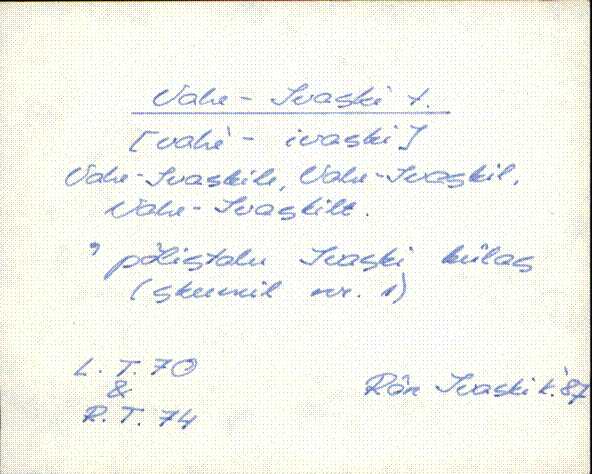 Vahe-Ivaski t.
[vahè - ivaski]
Vahe-Ivaskile, Vahe-Ivaskil,
Vahe-Ivaskilt.
põlistalu Ivaski külas
(skeemil nr. 1)
L. T. 70
&
R. T. 74
Rõn Ivaski k. '87